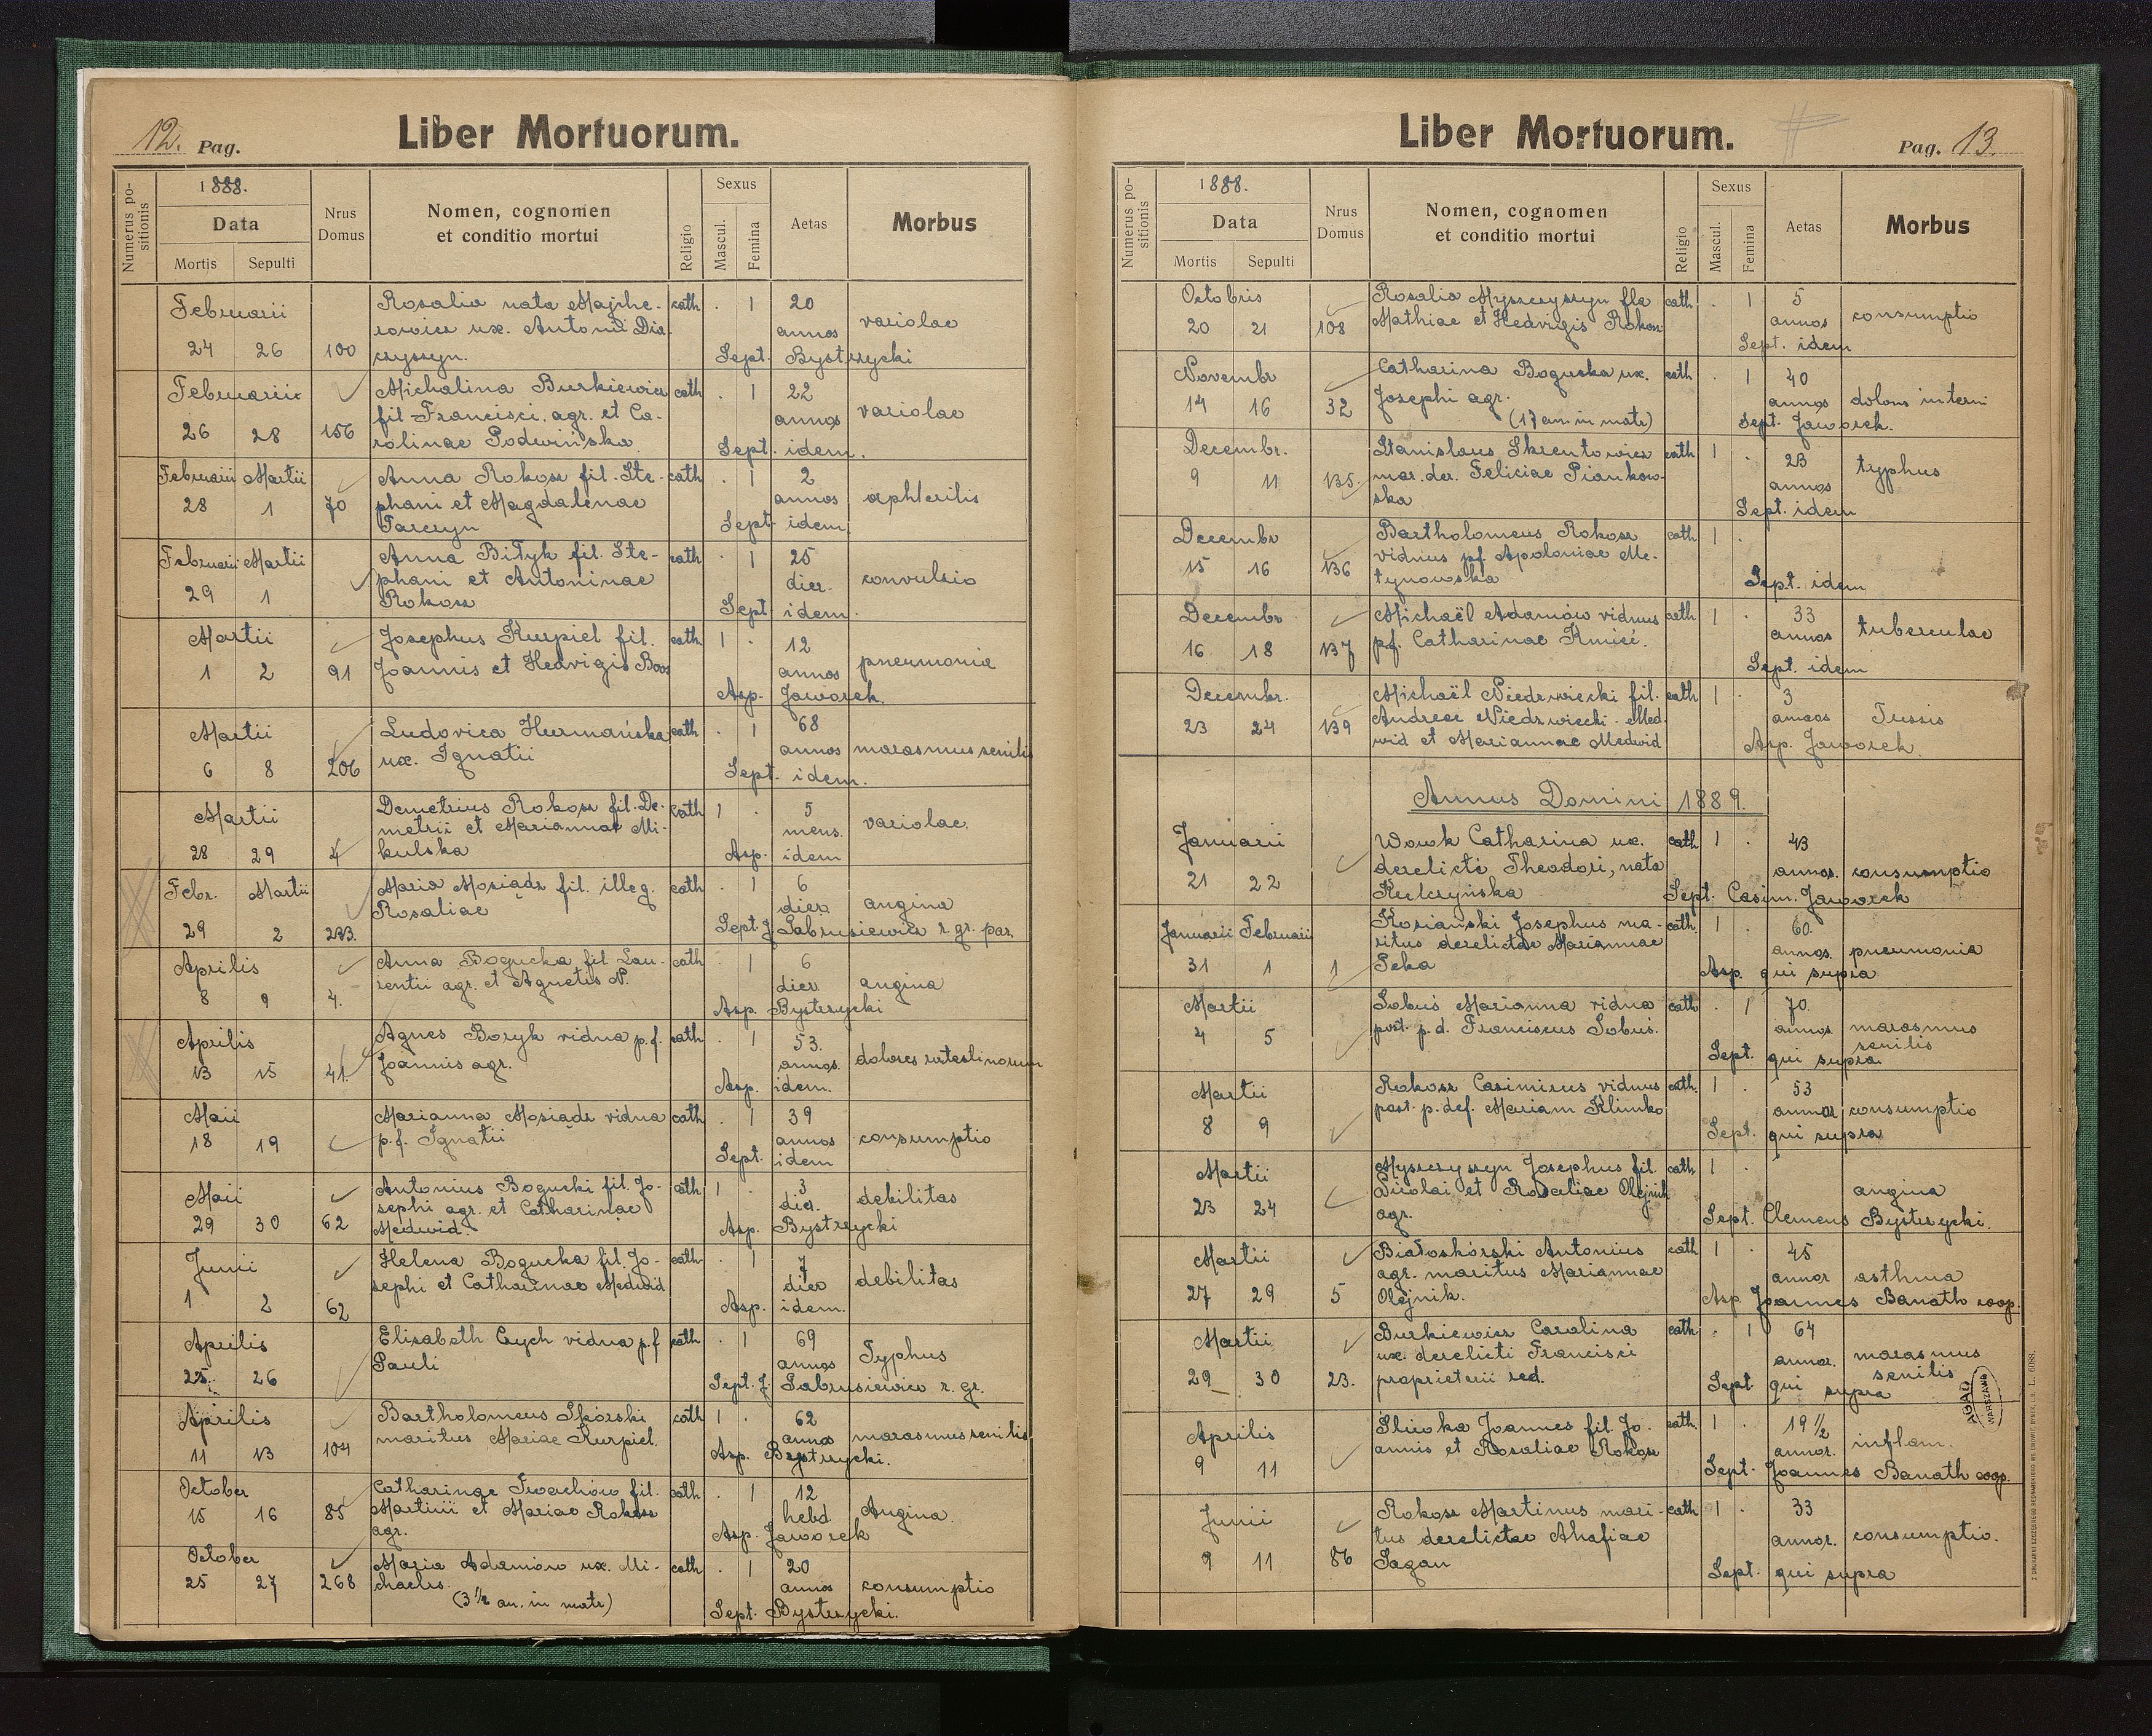 12. Pag.
Liber Mortuorum.
Numerus po-
sitionis
1888.
Data
Mortis Sepulti
Nrus
Domus
Nomen, cognomen
et conditio mortui
Religio
Sexus
Mascul. Femina
Aetas
Morbus
Februarii Rosalia nata Majche- cath . 1 20
rowicz ux. Antonii annos variolae
24 26 100 Sept. Bystrzycki
Februarii Michalina Burkiewicz cath . 1 22
fil Francisci. agr. et Ca- annos variolae
26 28 156 rolinae Podwińska Sept. idem.
Februarii Martii Anna Rokosz fil. Ste- cath . 1 2
28 1 70 phani et Magdalenae annos
Tarczyn Sept. idem
Februarii Martii Anna Bityk fil. Ste- cath . 1 25
phani et Antoninae dier. convulsio
29 1 Rokosz Sept. idem.
Martii Josephus Kurpiel fil. cath. 1 . 12
1 2 91 Joannis et Hedvigis Boos annos pneumonia
Asp. Jaworek.
Martii Ludovica Hurmańska cath . 1 68
6 8 206 ux. Ignatii annos marasmus senilis
Sept. idem.
Martii Demetrius Rokosz fil. De- cath 1 . 5
metrii et Mariannae Mi- mens. variolae.
28 29 4 kulska Asp. idem
Febr. Martii Maria Mosiądz fil. illeg. cath . 1 6
Rosaliae dier. angina
29 2 Sept. J. Labrusiewicz r. gr. par.
Aprilis Anna Bogucka fil Lau- cath . 1 6
8 9 4. rentii agr. et Agnetis N. dier angina
Asp. Bystrzycki
Aprilis Agnes Boryk vidua p.f. cath . 1 53.
13 15 41. Joannis agr. annos. dolores intestinorum
Asp. idem.
Maii Marianna Mosiądz vidua cath . 1 39
18 19 p.f. Ignatii annos consumptio
Sept. idem
Maii Antonius Bogucki fil. Jo- cath 1 . 3
29 30 62 sephi agr. et Catharinae die. debilitas
Medwid. Asp. Bystrzycki
Junii Helena Bogucka fil. Jo- cath . 1 7
1 2 62 sephi et Catharinae Medwid dier debilitas
Asp. idem.
Aprilis Elisabeth Cych vidua p.f cath . 1 69
25. 26 Pauli annos Typhus
Sept. J. Labrusiewicz r. gr.
Aprilis Bartholomeus Skórski cath 1 . 62
11 13 104 maritus Mariae Kurpiel. annos marasmus senilis
Asp. Bystrzycki.
October Catharinae Twachów fil. cath . 1 12
15 16 85 Martini et Mariae Rokosz hebd. Angina.
agr. Asp. Jaworek
October Maria Adamów ux. Mi- cath . 1 20
25 27 268 chaelis. annos consumptio
(3 1/2 an. in matr) Sept. Bystrzycki.
Liber Mortuorum.
Pag. 13.
Numerus po-
sitionis
1888.
Data
Mortis Sepulti
Nrus
Domus
Nomen, cognomen
et conditio mortui
Religio
Sexus
Mascul. Femina
Aetas
Morbus
Octobris Rosalia Myszczyszyn fla cath . 1 5
20 21 108 Mathiae et Hedvigis Rokosz annos consumptio
Sept. idem
Novembr Catharina Bogucka ux. cath . 1 40
14 16 32 Josephi agr. annos dolores interni
(17 an. in matr) Sept. Jaworek.
Decembr. Stanislaus Skrentowicz cath 1 . 23
9 11 135. mar. der. Feliciae Piankow- annos typhus
ska Sept. idem
Decembr Bartholomeus Rokosz cath 1 .
15 16 136 viduus p.f. Apoloniae Me-
tynowska Sept. idem
Decembr Michaël Adamów viduus cath 1 . 33
16 18 137 p.f. Catharinae Kmieć. annos tuberculae
Sept. idem
Decembr. Michaël Niedzwiecki fil. cath 1 . 3
23 24 139 Andreae Niedzwiecki - Med- annos Tussis
wid et Mariannae Medwid Asp. Jaworek.
Annus Domini 1889.
Januarii Wowk Catharina ux. cath 1 . 43
21 22 derelicti Theodori, nata annos. consumptio
Kulczyńska Sept. Casim. Jaworek
Januarii Februarii Koziański Josephus ma- cath. 1 . 60.
ritus derelictae Mariannae annos. pneumonia
31 1 1 Seka Asp. qui supra
Martii Sobuś Marianna vidua cath . 1 70.
4 5 post. p.d. Franciscus Sobuś. annos. marasmus
senilis
Sept. qui supra.
Martii Rokosz Casimirus viduus cath. 1 . 53
8 9 post. p. def. Mariam Klimko annor consumptio
Sept. qui supra
Martii Myszczyszyn Josephus fil. cath 1 .
23 24 Nicolai et Rosaliae Olejnik angina
agr. Sept. Clemens Bystrzycki.
Martii Białoskórski Antonius cath 1 . 45
agr. maritus Mariannae annor asthma
27 29 5 Olejnik. Asp. Joannes Banath coop.
Martii Burkiewicz Carolina cath . 1 64
ux. derelicti Francisci annor. marasmus
29 30 23. proprietarii red. senilis
Sept qui supra
Aprilis Sliwka Joannes fil. Jo- cath. 1 . 19 1/2
9 11 annis et Rosaliae Rokosz annor. inflam.
Sept. Joannes Banath coop.
Junii Rokosz Martinus mari- cath 1 . 33
tus derelictae Ahafiae annor. consumptio.
9 11 86 Sagan Sept. qui supra
AGAD
WARSZAWA